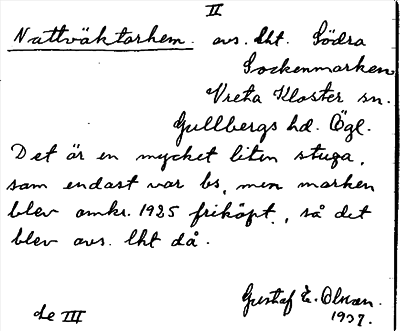 II
Nattväktarhem. avs. lht. Södra
Sockenmarken
Vreta Kloster sn.
Gullbergs hd. Ögl.
Det är en mycket liten stuga,
som endast var bs, men marken
blev omkr. 1925 friköpt, så det
blev avs. lht då.
Gustaf E. Olsson.
de III 1937.